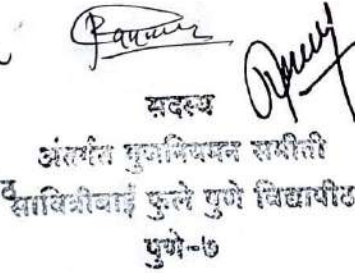 सदस्य
अंतर्गत गुणनियमन समिती
सावित्रीबाई फुले पुणे विद्यापीठ
पुणे-७